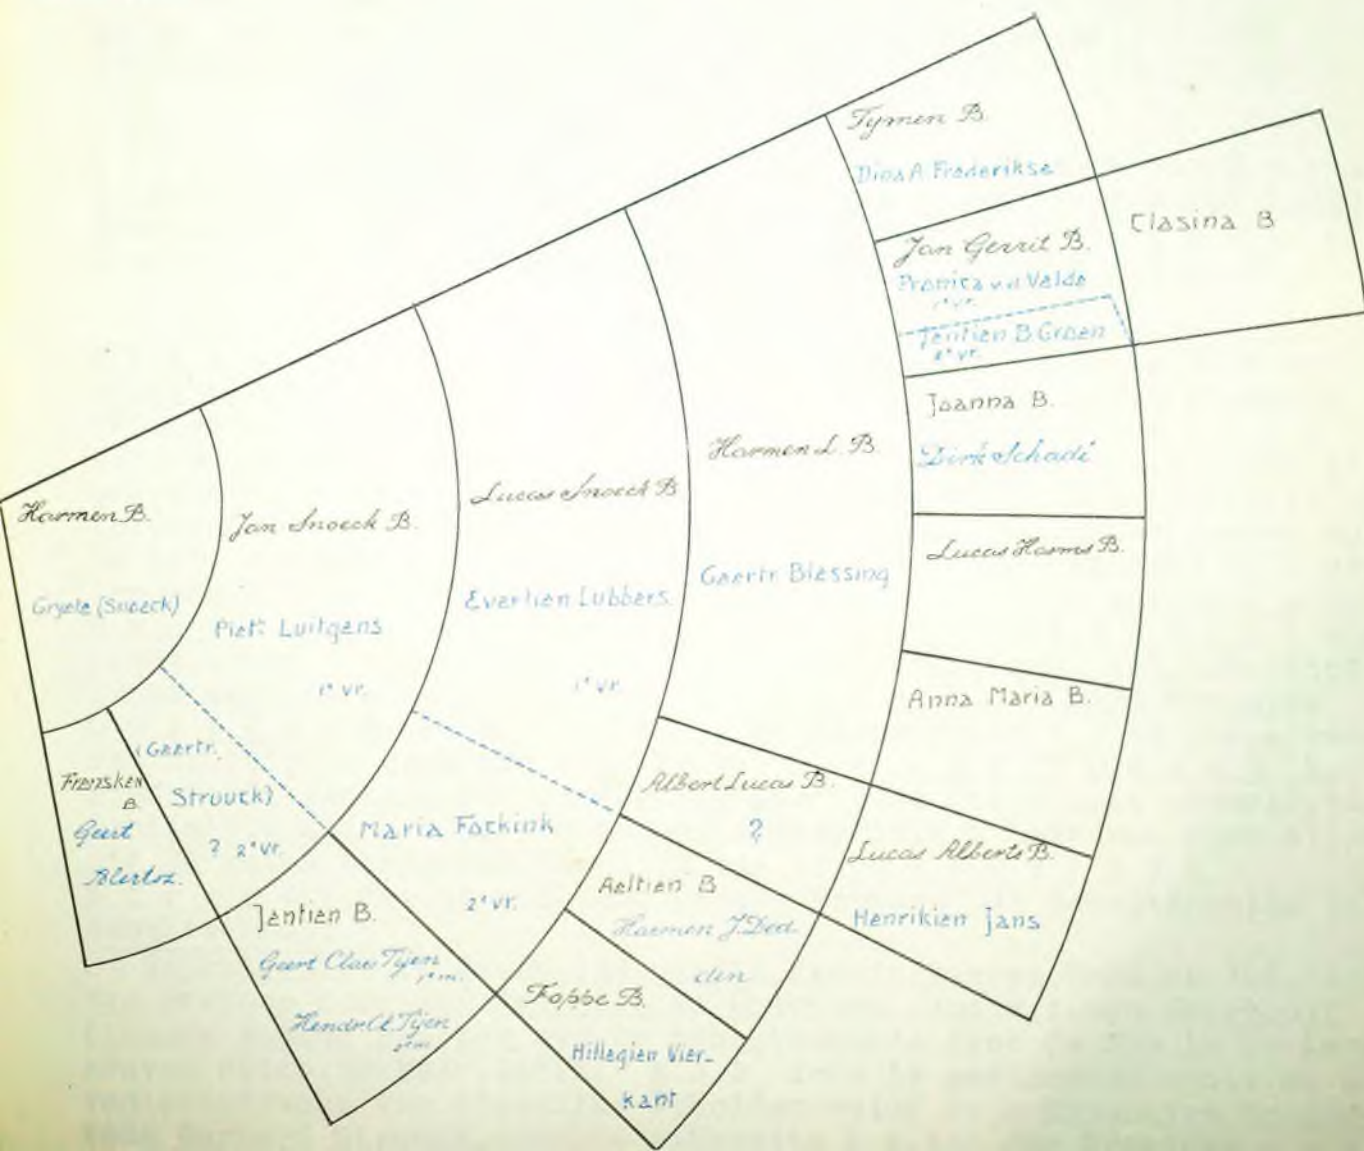 Harmen B.
Gryete (Snoeck)
Jan Snoeck B.
Piet. Luitgens
1e vr.
(Geertr.
Strouck)
? 2e vr.
Fransken
B.
Geert
Lucas Snoeck B
Evertien Lubbers
1e vr.
Maria Fockink
2e vr.
Jentien B.
Geert Claes Tijen
1e m.
Hendr. Cl. Tijen
2e m.
Harmen L. B.
Geertr Blessing
Albert Lucas B.
?
Aeltien B
Harmen J. Ded.
den
Foppe B.
Hillegien Vier-
kant
Tymen B.
Dina A. Frederikse
Jan Gerrit B.
v.d Velde
1e vr.
Jentien B. Groen
2e vr.
Joanna B.
Dirk Schadé
Lucas Harms B.
Anna Maria B.
Lucas Alberts B.
Henrikien Jans
Clasina B